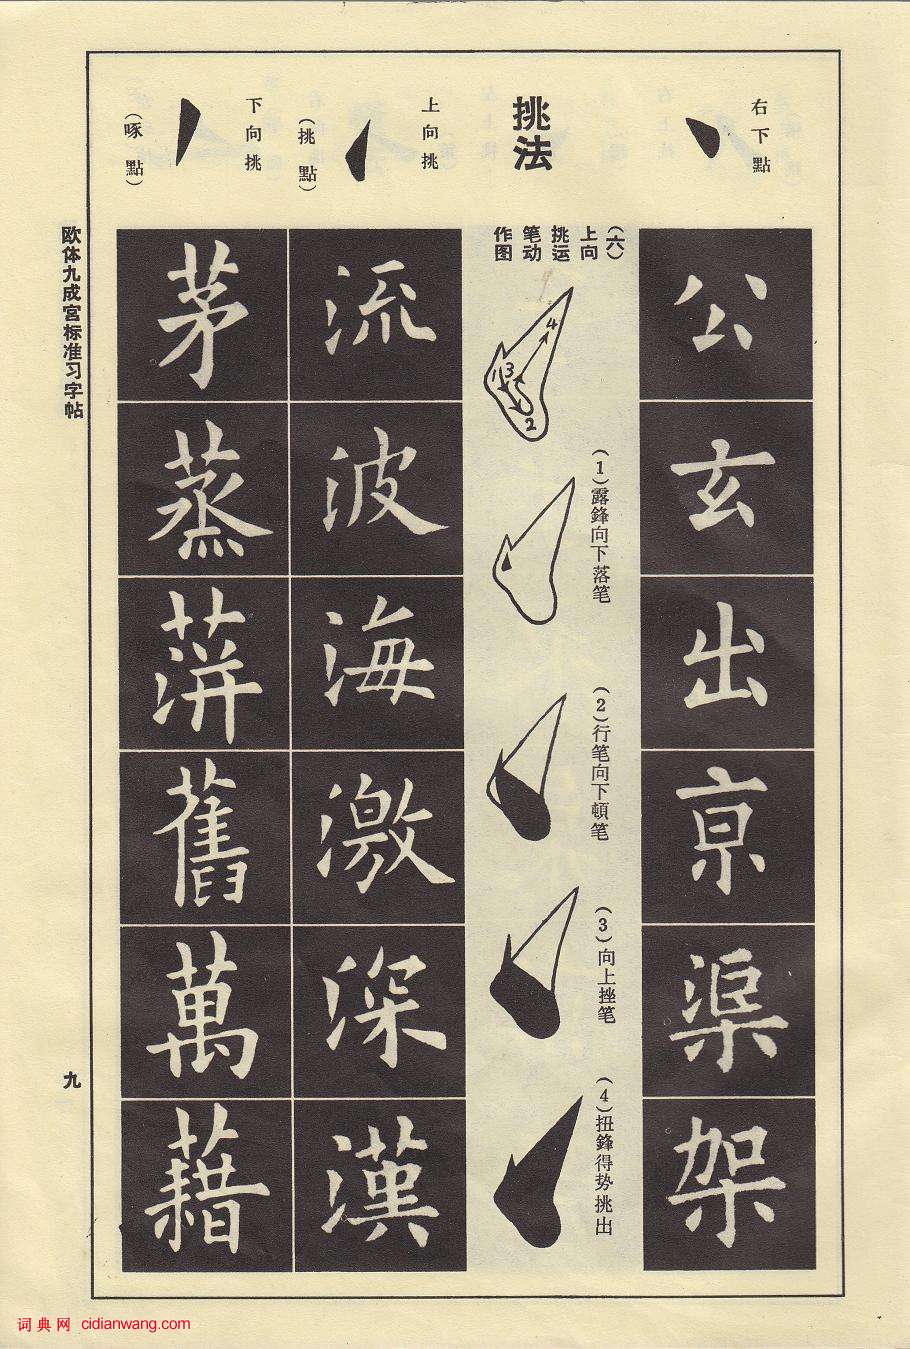 右下點
公
玄
出
京
渠
架
挑法
(六)
上向
挑运
笔动
作图
1
2
3
4
(1)露鋒向下落笔
(2)行笔向下頓笔
(3)向上挫笔
(4)扭鋒得势挑出
上向挑
(挑點)
流
波
海
激
深
漢
下向挑
(啄點)
茅
蒸
蓱
舊
萬
藉
欧体九成宮标准习字帖
九
词典网 cidianwang.com